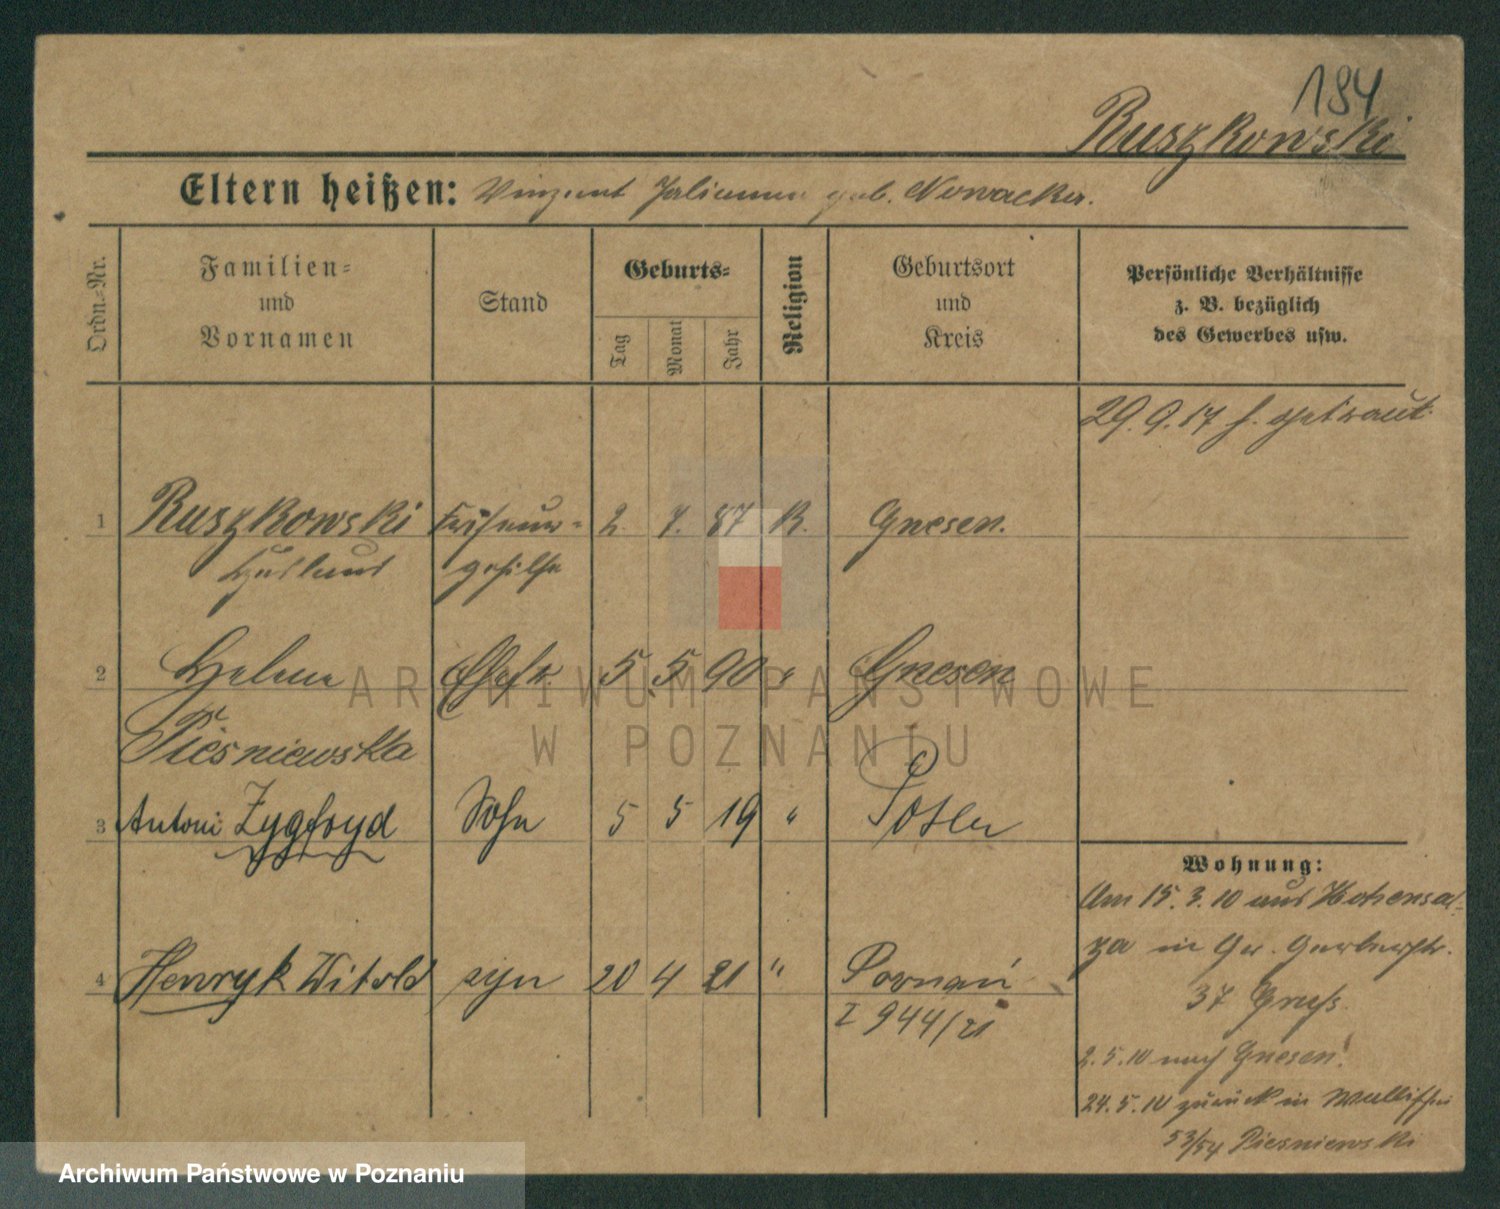 194
Ruszkowski
Eltern heißen: Vinzent Julianna geb. Nowacka.
Ordn.-Nr.
Familien-
und
Vornamen
Stand
Geburts-
Tag
Monat
Jahr
Religion
Geburtsort
und
Kreis
Persönliche Verhältnisse
z. B. bezüglich
des Gewerbes usw.
29.9.17 h. getraut
1 Ruszkowski Friseur- 2. 7. 87 K. Gnesen.
gehilfe
2 Helene Ehefr. 5 5 90 " Gnesen
Pieśniewska
3 Antoni Zygfryd Sohn 5 5 19 " Posen
Wohnung:
Am 15.3.10 aus Hohensal-
za in Gr. Gerberstr.
37
2.5.10 nach Gnesen.
24.5.10 zurück in Wallischei
53/54 Piesniewski
4 Henryk Witold syn 20 4 21 " Poznań
I 944/21
ARCHIWUM PAŃSTWOWE
W POZNANIU
Archiwum Państwowe w Poznaniu